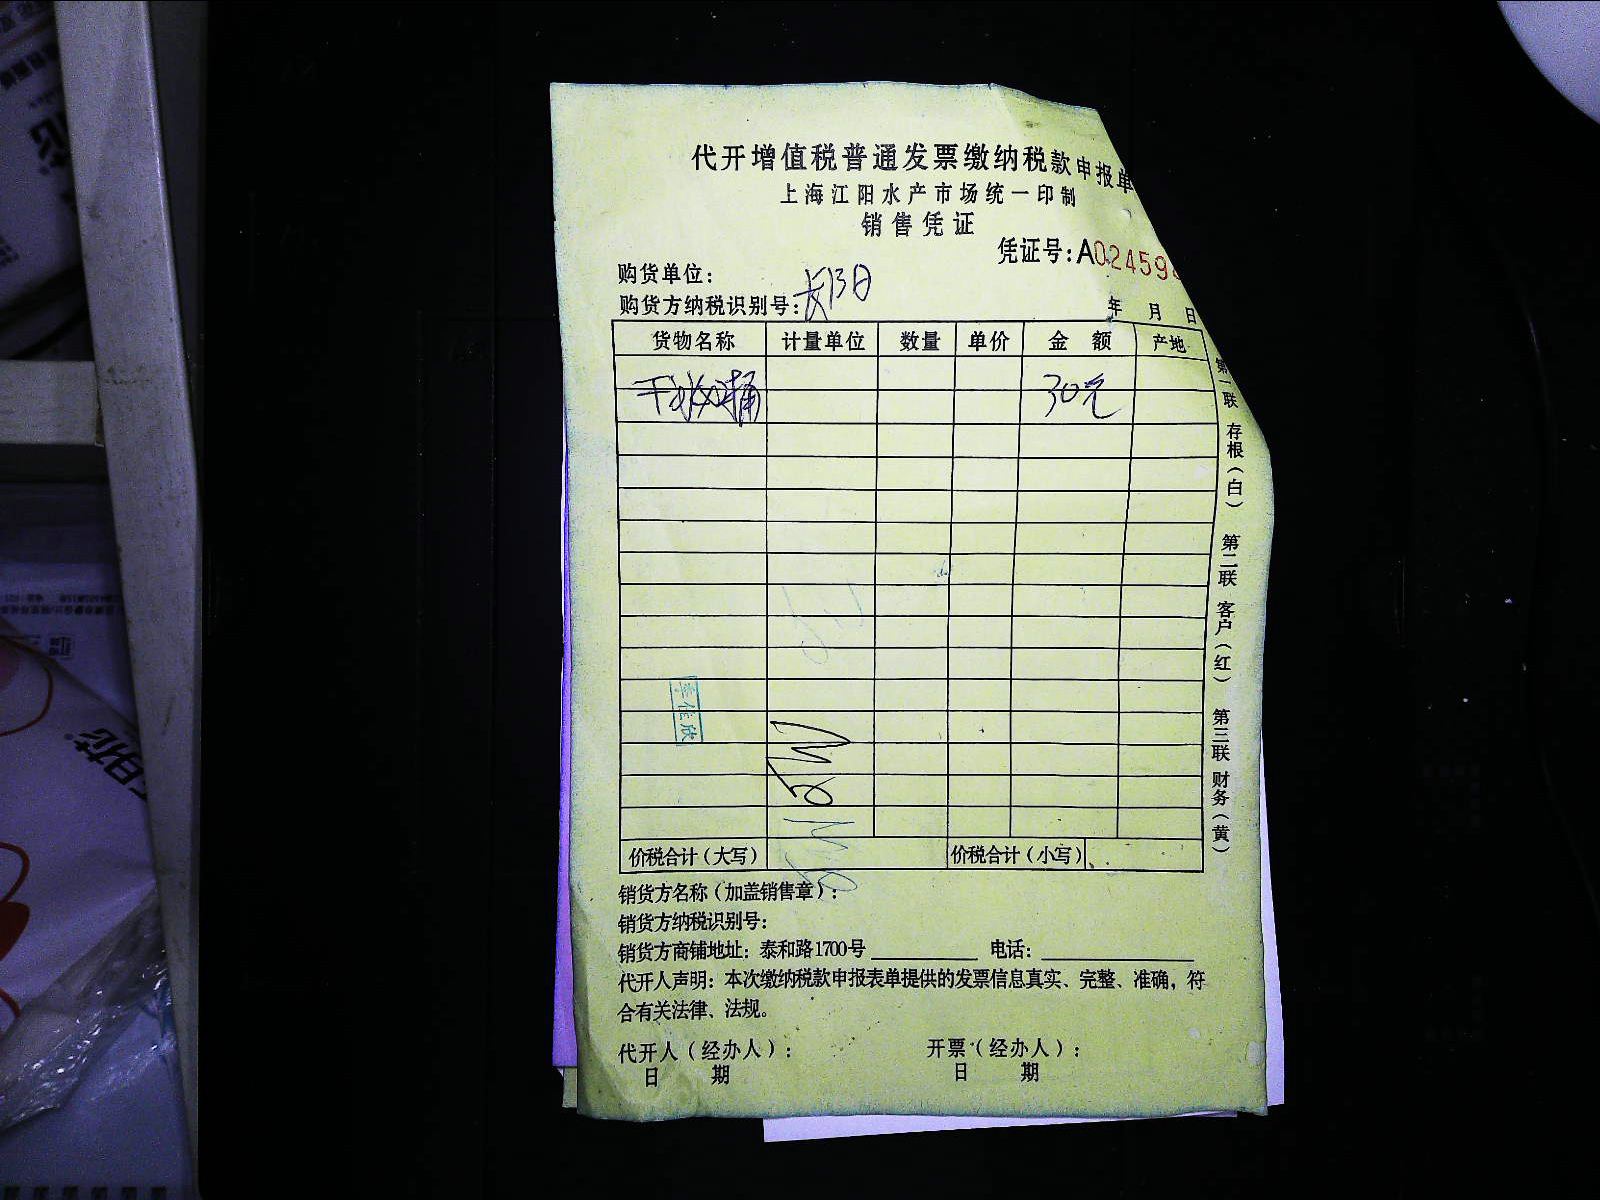 代开增值税普通发票缴纳税款申报单
上海江阳水产市场统一印制
销售凭证
凭证号:A024598
购货单位:
购货方纳税识别号:
年 月 日
货物名称 计量单位 数量 单价 金 额 产地
30元
价税合计(大写) 价税合计(小写)
销货方名称(加盖销售章):
销货方纳税识别号:
销货方商铺地址: 泰和路1700号 电话:
代开人声明: 本次缴纳税款申报表单提供的发票信息真实、完整、准确,符
合有关法律、法规。
代开人(经办人): 开票(经办人):
日 期 日 期
第一联 存根(白) 第二联 客户(红) 第三联 财务(黄)
李佳欣